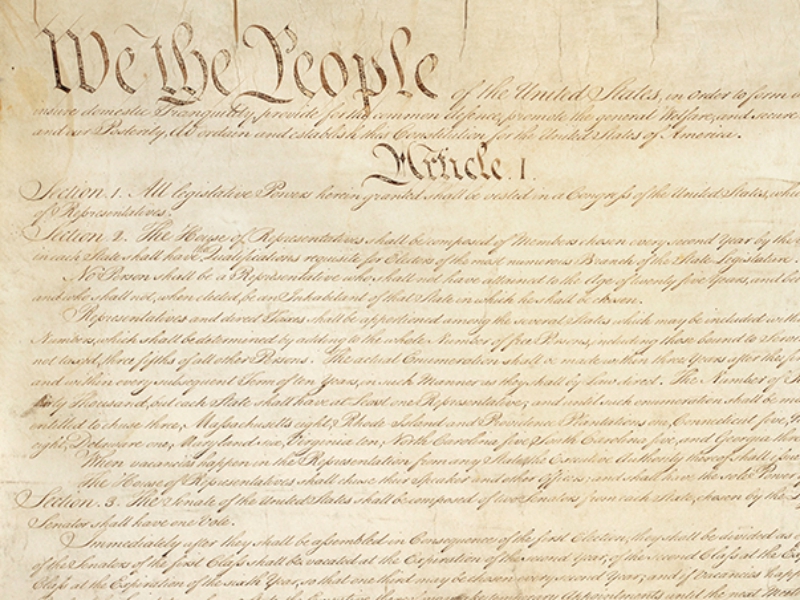 We the People of the United States, in order to form a
insure domestic Tranquility, provide for the common defence, promote the general Welfare, and secure
and our Posterity, do ordain and establish this Constitution for the United States of America.
Article. I.
Section. 1. All legislative Powers herein granted shall be vested in a Congress of the United States, which
of Representatives.
Section. 2. The House of Representatives shall be composed of Members chosen every second Year by the
in each State shall have the Qualifications requisite for Electors of the most numerous Branch of the State Legislature.
No Person shall be a Representative who shall not have attained to the Age of twenty five Years, and
and who shall not, when elected, be an Inhabitant of that State in which he shall be chosen.
Representatives and direct Taxes shall be apportioned among the several States which may be included
Numbers, which shall be determined by adding to the whole Number of free Persons, including those bound to
not taxed, three fifths of all other Persons. The actual Enumeration shall be made within three Years after the
and within every subsequent Term of ten Years, in such Manner as they shall by Law direct. The Number of
thirty Thousand, but each State shall have at Least one Representative; and until such enumeration shall be
entitled to chuse three, Massachusetts eight, Rhode Island and Providence Plantations one, Connecticut five,
eight, Delaware one, Maryland six, Virginia ten, North Carolina five, South Carolina five, and Georgia
When vacancies happen in the Representation from any State, the Executive Authority thereof shall
The House of Representatives shall chuse their Speaker and other Officers; and shall have the sole Power
Section. 3. The Senate of the United States shall be composed of two Senators from each State, chosen by the
Senator shall have one Vote.
Immediately after they shall be assembled in Consequence of the first Election, they shall be divided as
of the Senators of the first Class shall be vacated at the Expiration of the second Year, of the second Class at the
Class at the Expiration of the sixth Year, so that one third may be chosen every second Year; and if Vacancies